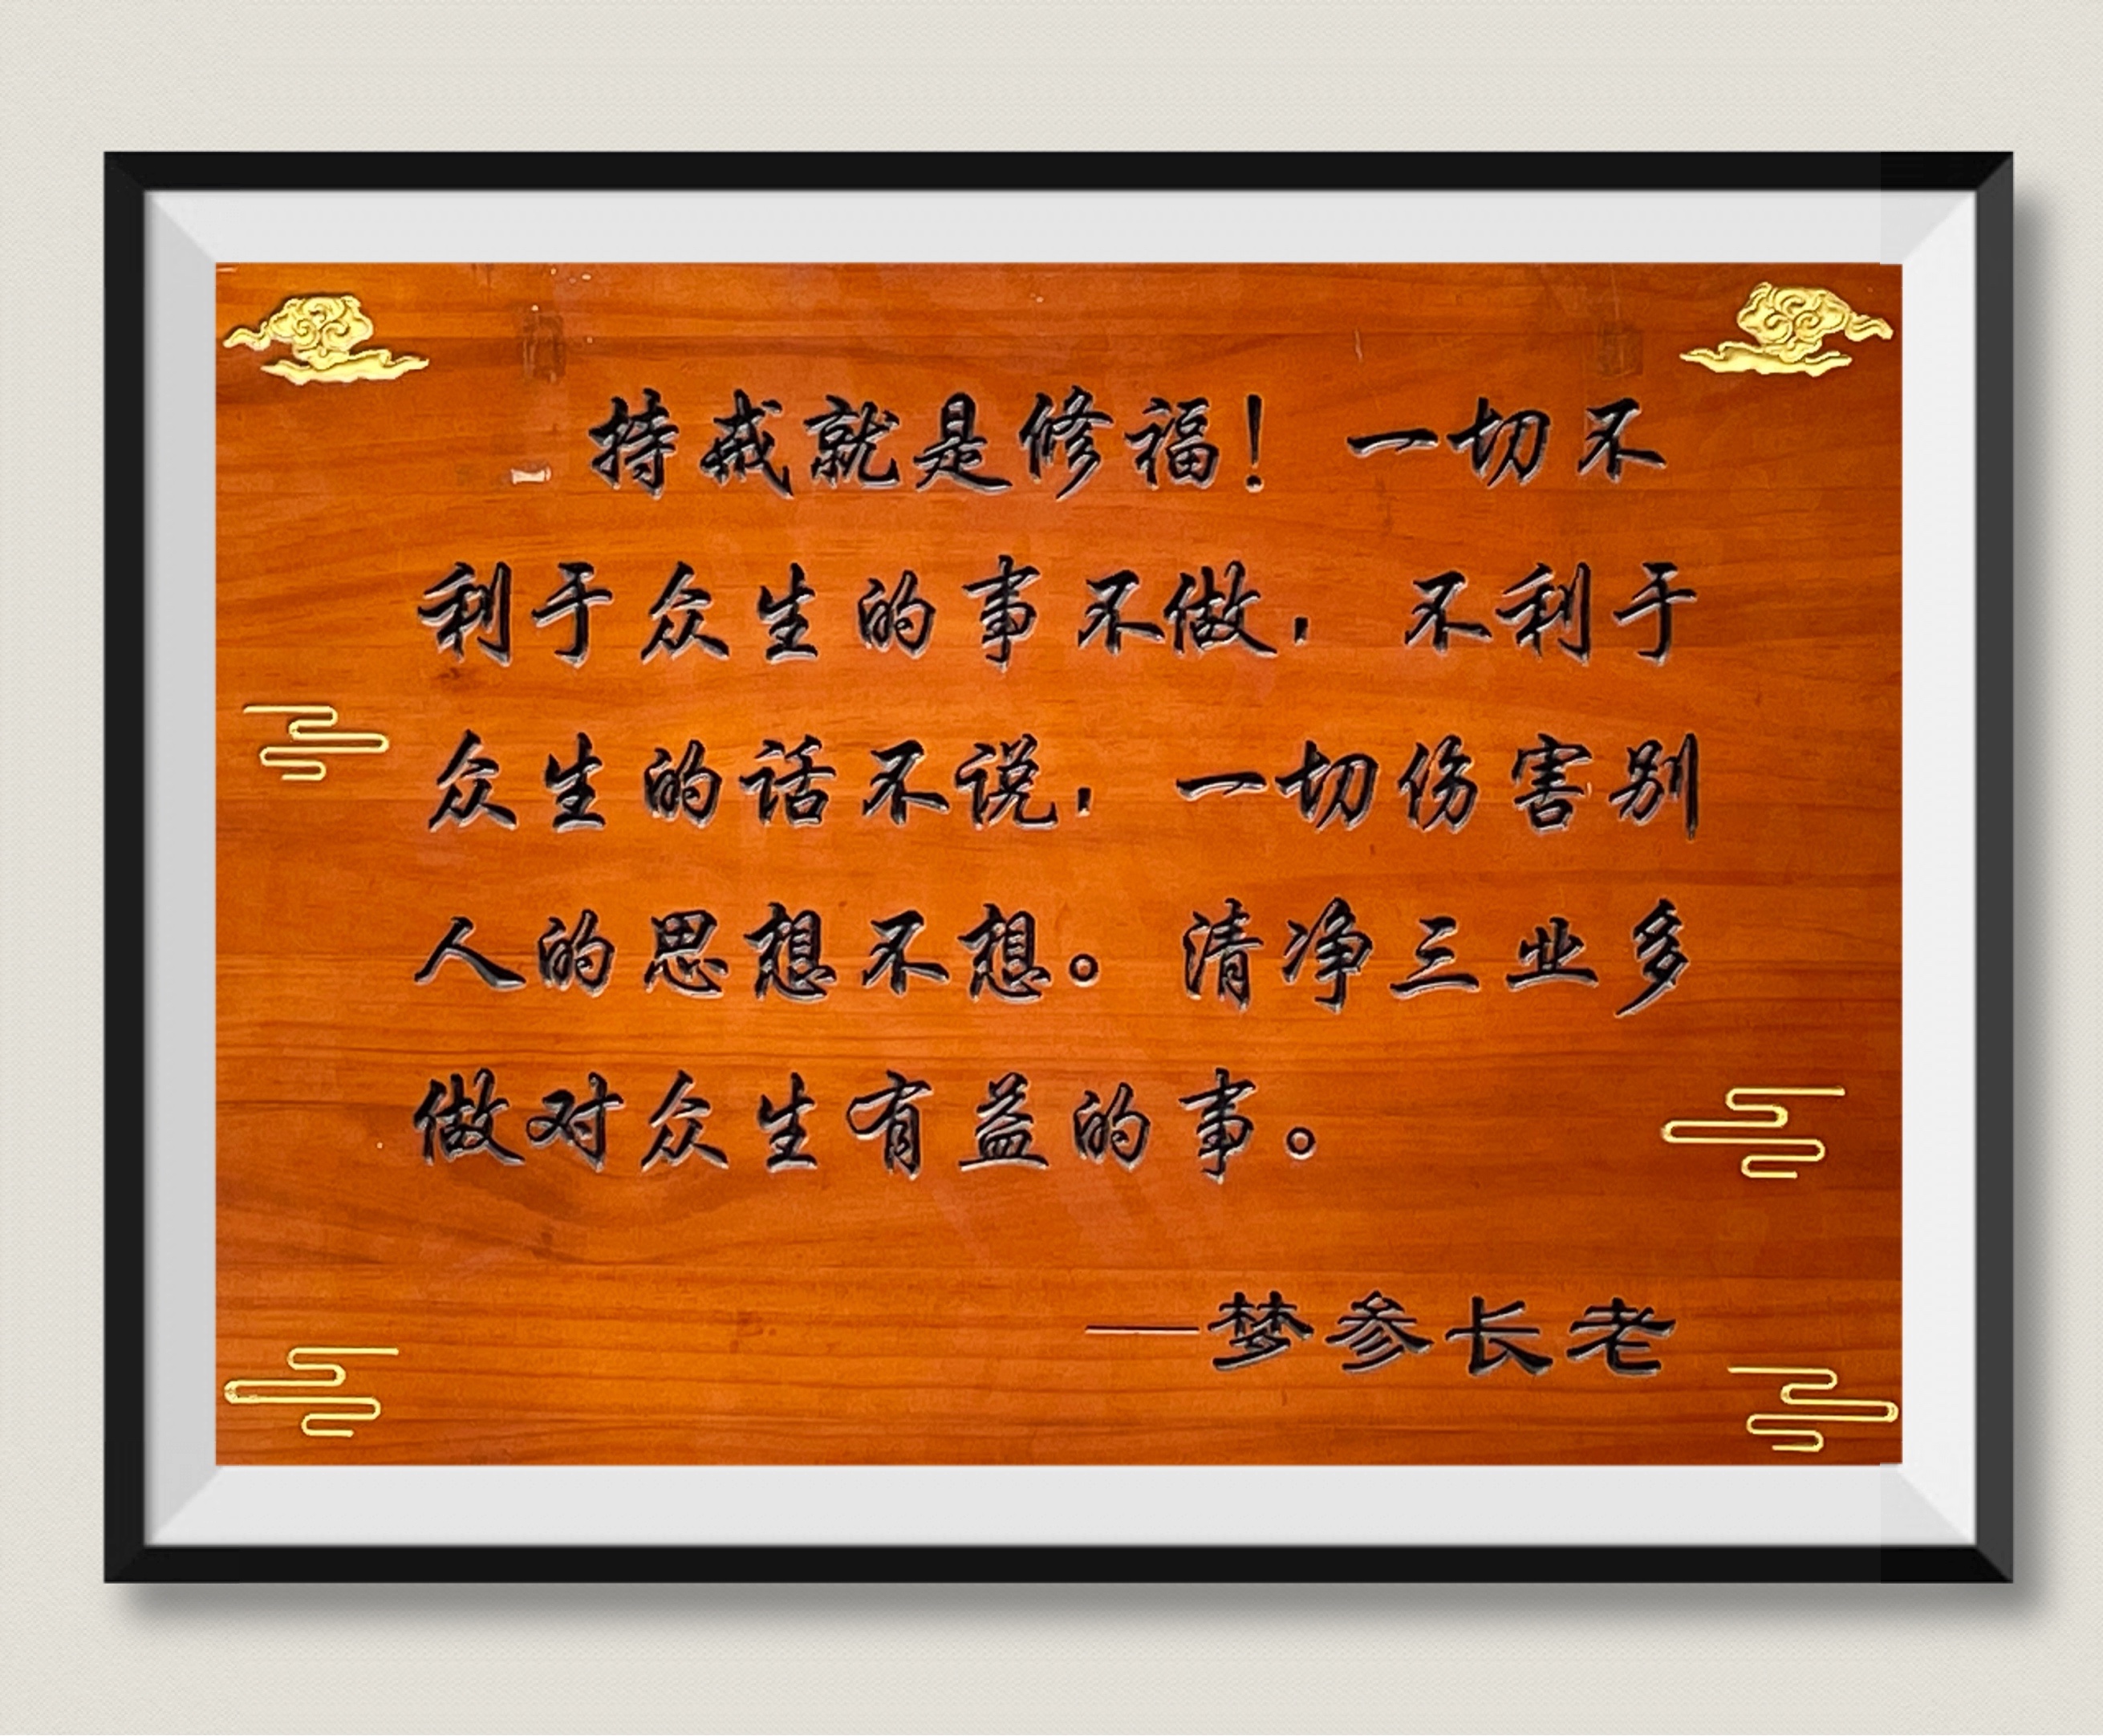 持戒就是修福！一切不
利于众生的事不做，不利于
众生的话不说，一切伤害别
人的思想不想。清净三业多
做对众生有益的事。
—梦参长老